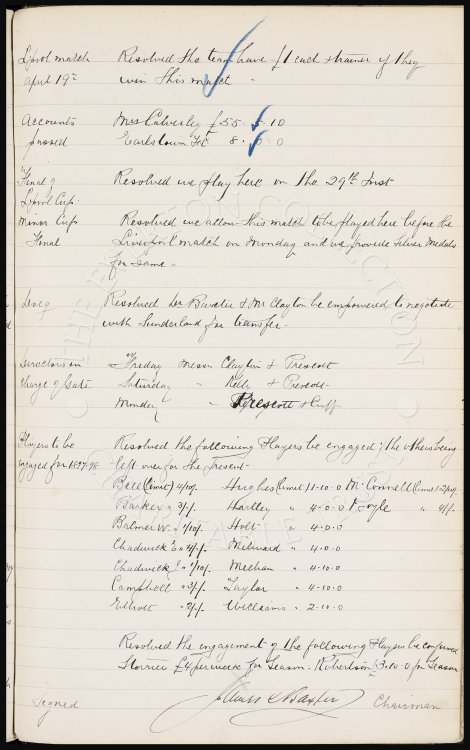 L'pool match Resolved the team have £1 each stramer if they
April 19th win this match -
Accounts Miss Calverley £55 . 5 . 10
passed Earlstown F.C. 8 . 0
Final of Resolved we play here on the 29th Inst
L'pool Cup.
Minor Cup Resolved we allow this match to be played here before the
Final Liverpool match on Monday and we provide Silver Medals
for same -
Resolved Dr Baxter & Mr Clayton be empowered to negotiate
with Sunderland for transfer.
Directors in Friday Messrs Clayton & Prescott
Charge of Gate Saturday " Kelly & Prescott
Monday " Prescott & Cuff
Players to be Resolved the following Players be engaged; the others being
engaged for 1897-98 left over for the present -
Bell (Limit) Hughes (Limit) 10-0 McConnell (Limit)
Barker " Hartley " 4-0-0 Foyle " 4/-
Balmer W. " Holt " 4-0-0
Chadwick E " Milward " 4-0-0
Chadwick " Meehan " 4-10-0
Campbell " Taylor " 4-10-0
Elliott " Williams " 2-10-0
Resolved the engagement of the following Players be confirmed
Storrier £4 per week for Season. Robertson £3-10-0 for Season
Signed James C Baxter Chairman
THE EVERTON COLLECTION
CHARITABLE TRUST